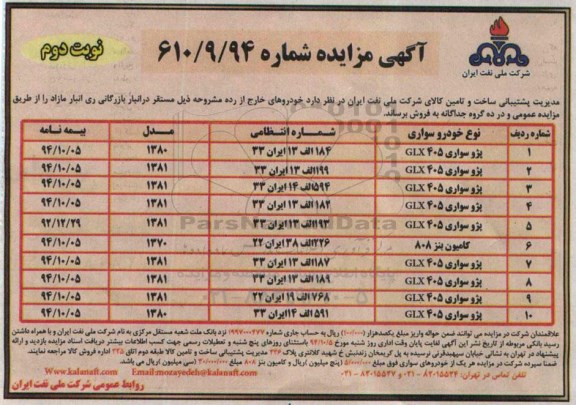 نوبت دوم
آگهی مزایده شماره ۶۱۰/۹/۹۴
شرکت ملی نفت ایران
مدیریت پشتیبانی ساخت و تامین کالای شرکت ملی نفت ایران در نظر دارد خودروهای خارج از رده مشروحه ذیل مستقر درانبار بازرگانی ری انبار مازاد را از طریق
مزایده عمومی و در ده گروه جداگانه به فروش برساند.
شماره ردیف نوع خودرو سواری شماره انتظامی مدل بیمه نامه
۱ پژو سواری ۴۰۵ GLX ۱۸۴ الف ۱۳ ایران ۳۳ ۱۳۸۰ ۹۴/۱۰/۰۵
۲ پژو سواری ۴۰۵ GLX ۱۹۹ الف ۱۳ ایران ۳۳ ۱۳۸۱ ۹۴/۱۰/۰۵
۳ پژو سواری ۴۰۵ GLX ۵۹۴ الف ۱۴ ایران ۳۳ ۱۳۸۱ ۹۴/۱۰/۰۵
۴ پژو سواری ۴۰۵ GLX ۱۸۲ الف ۱۳ ایران ۳۳ ۱۳۸۱ ۹۴/۱۰/۰۵
۵ پژو سواری ۴۰۵ GLX ۱۹۳ الف ۱۳ ایران ۳۳ ۱۳۸۱ ۹۲/۱۲/۲۹
۶ کامیون بنز ۸۰۸ ۲۲۶ الف ۳۸ ایران ۲۲ ۱۳۷۰ ۹۴/۱۰/۰۵
۷ پژو سواری ۴۰۵ GLX ۱۸۷ الف ۱۳ ایران ۳۳ ۱۳۸۱ ۹۴/۱۰/۰۵
۸ پژو سواری ۴۰۵ GLX ۱۸۹ الف ۱۳ ایران ۳۳ ۱۳۸۱ ۹۴/۱۰/۰۵
۹ پژو سواری ۴۰۵ GLX ۷۶۸ الف ۱۹ ایران ۲۲ ۱۳۸۱ ۹۴/۱۰/۰۵
۱۰ پژو سواری ۴۰۵ GLX ۵۹۱ الف ۱۴ ایران ۳۳ ۱۳۸۰ ۹۴/۱۰/۰۵
ParsNamadData
علاقمندان شرکت در مزایده می توانند ضمن حواله واریز مبلغ یکصدهزار (۱۰۰/۰۰۰) ریال به حساب جاری شماره نزد بانک ملت شعبه مستقل مرکزی به نام شرکت ملی نفت ایران و با همراه داشتن
رسید بانکی مربوطه از تاریخ نشر این آگهی لغایت پایان وقت اداری روز شنبه مورخ ۹۴/۱۰/۵ باستثنای روزهای پنج شنبه و تعطیلات رسمی جهت کسب اطلاعات بیشتر دریافت اسناد مزایده بازدید و ارائه
پیشنهاد در تهران به نشانی خیابان سپهبدقرنی نرسیده به پل کریمخان زندنبش خ شهید کلانتری پلاک ۲۲۶ مدیریت پشتیبانی ساخت و تامین کالا طبقه دوم اتاق ۲۳۵ اداره فروش کالا مراجعه نمایند.
ضمنا سپرده شرکت در مزایده هر یک از خودروهای سواری فوق مبلغ ۵/۰۰۰/۰۰۰ (پنج میلیون ریال) و کامیون بنز ۸۰۸ مبلغ ۳۰/۰۰۰/۰۰۰ (سی میلیون ریال) می باشد.
تلفن تماس در تهران: ۸۲۰۱۵۵۳۴-۰۲۱ و ۸۲۰۱۵۵۲۷-۰۲۱
Email:mozayedeh@kalanaft.com www.kalanaft.com
روابط عمومی شرکت ملی نفت ایران